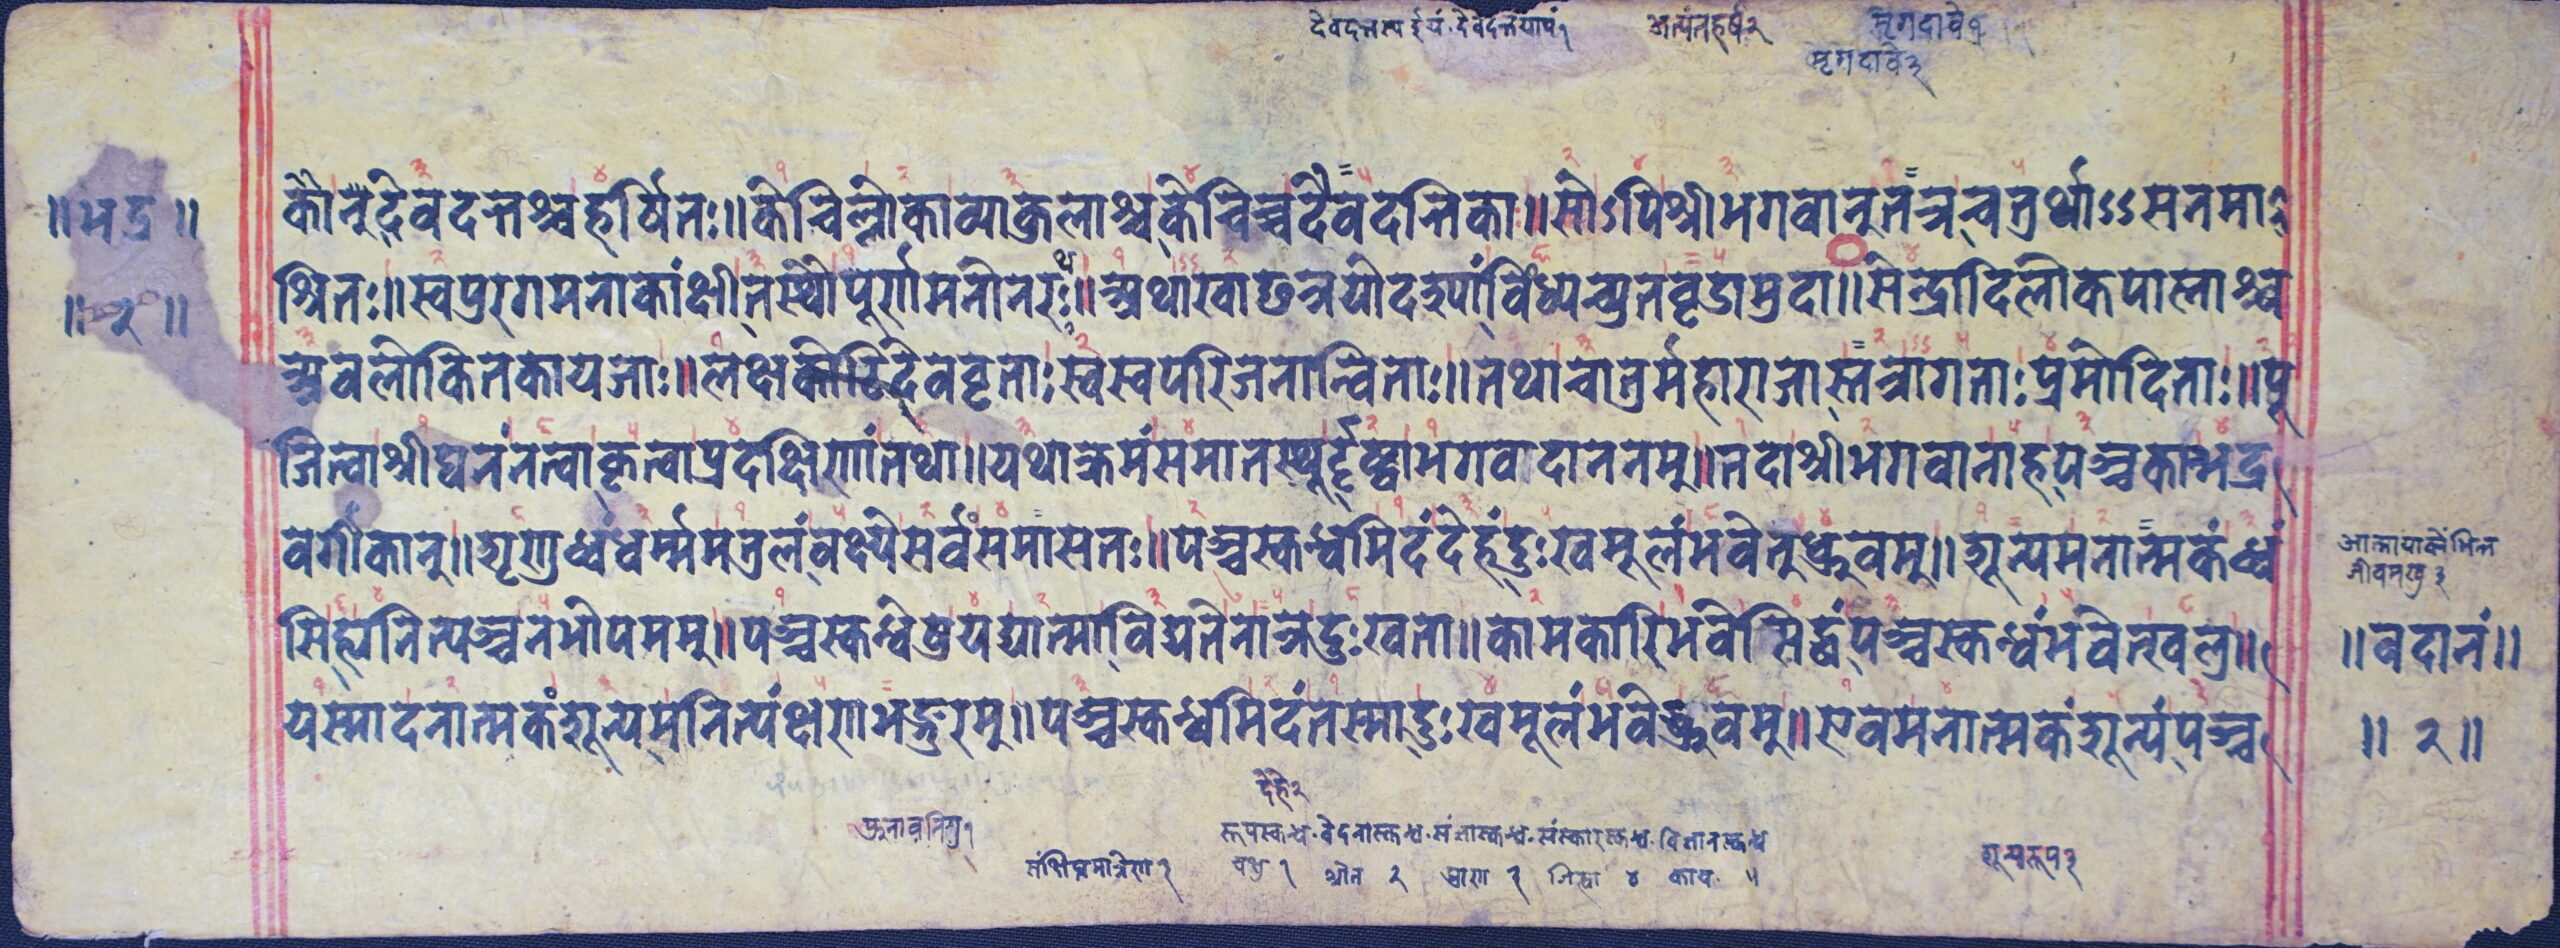 देवदत्तस्य ईर्य. देवदत्तयायं १ अत्यंतहर्ष २ मृगदावे १
मृगदावे ३
॥ भद्र ॥ कौनुदेवदत्तश्च हर्षितः ॥ केचिल्लोका व्याकुलाश्च केचिच्च दैवदत्तिका ॥ सोऽपि श्रीभगवानुत्तत्र चतुर्थाऽऽसनमा
श्रितः ॥ स्वपुरगमनाकांक्षी तस्थौ पूर्णमनोनरः ॥ अथारवाछत्रयोदश्यां विंध्यच्युतवृडामुदा ॥ सेन्द्रादिलोकपालाश्च
॥ २ ॥
अवलोकितकायजाः ॥ लक्षकोटिदेववृताः स्वस्वपरिजनान्विताः ॥ तथा चातुर्महाराजास्तत्रागताः प्रमोदिताः ॥ पू
जित्वा श्रीघनं नत्वा कृत्वा प्रदक्षिणां तथा ॥ यथाक्रमं समातस्थुर्दृष्ट्वा भगवदाननम् ॥ तदा श्रीभगवानाह पञ्चकान्भद्र
वर्गीकान् ॥ शृणुध्वं धर्म्ममतुलं वक्ष्ये सर्वं समासतः ॥ पञ्चस्कन्धमिदं देहं दुःखमूलं भवेत् ध्रुवम् ॥ शून्यमनात्मकं ध्वं
सिह्यनित्यञ्च नभोपमम् ॥ पञ्चस्कन्धेषु यद्यात्मा विद्यते नाङ्गदुःखता ॥ कामकारि भवे सिद्धं पञ्चस्कन्धं भवेत्खलु ॥
॥ वदानं ॥
यस्मादनात्मकं शून्यमनित्यं क्षणभङ्गुरम् ॥ पञ्चस्कन्धमिदं तस्माद्दुःखमूलं भवेद्ध्रुवम् ॥ एवमनात्मकं शून्यं पञ्च
॥ २ ॥
देहे २
रूपस्कन्ध. वेदनास्कन्ध. संज्ञास्कन्ध. संस्कारस्कन्ध. विज्ञानस्कन्ध
संक्षिप्तमात्रेण २ चक्षु १ श्रोत २ घ्राण ३ जिह्वा ४ काय. ५ शून्यरूप ३